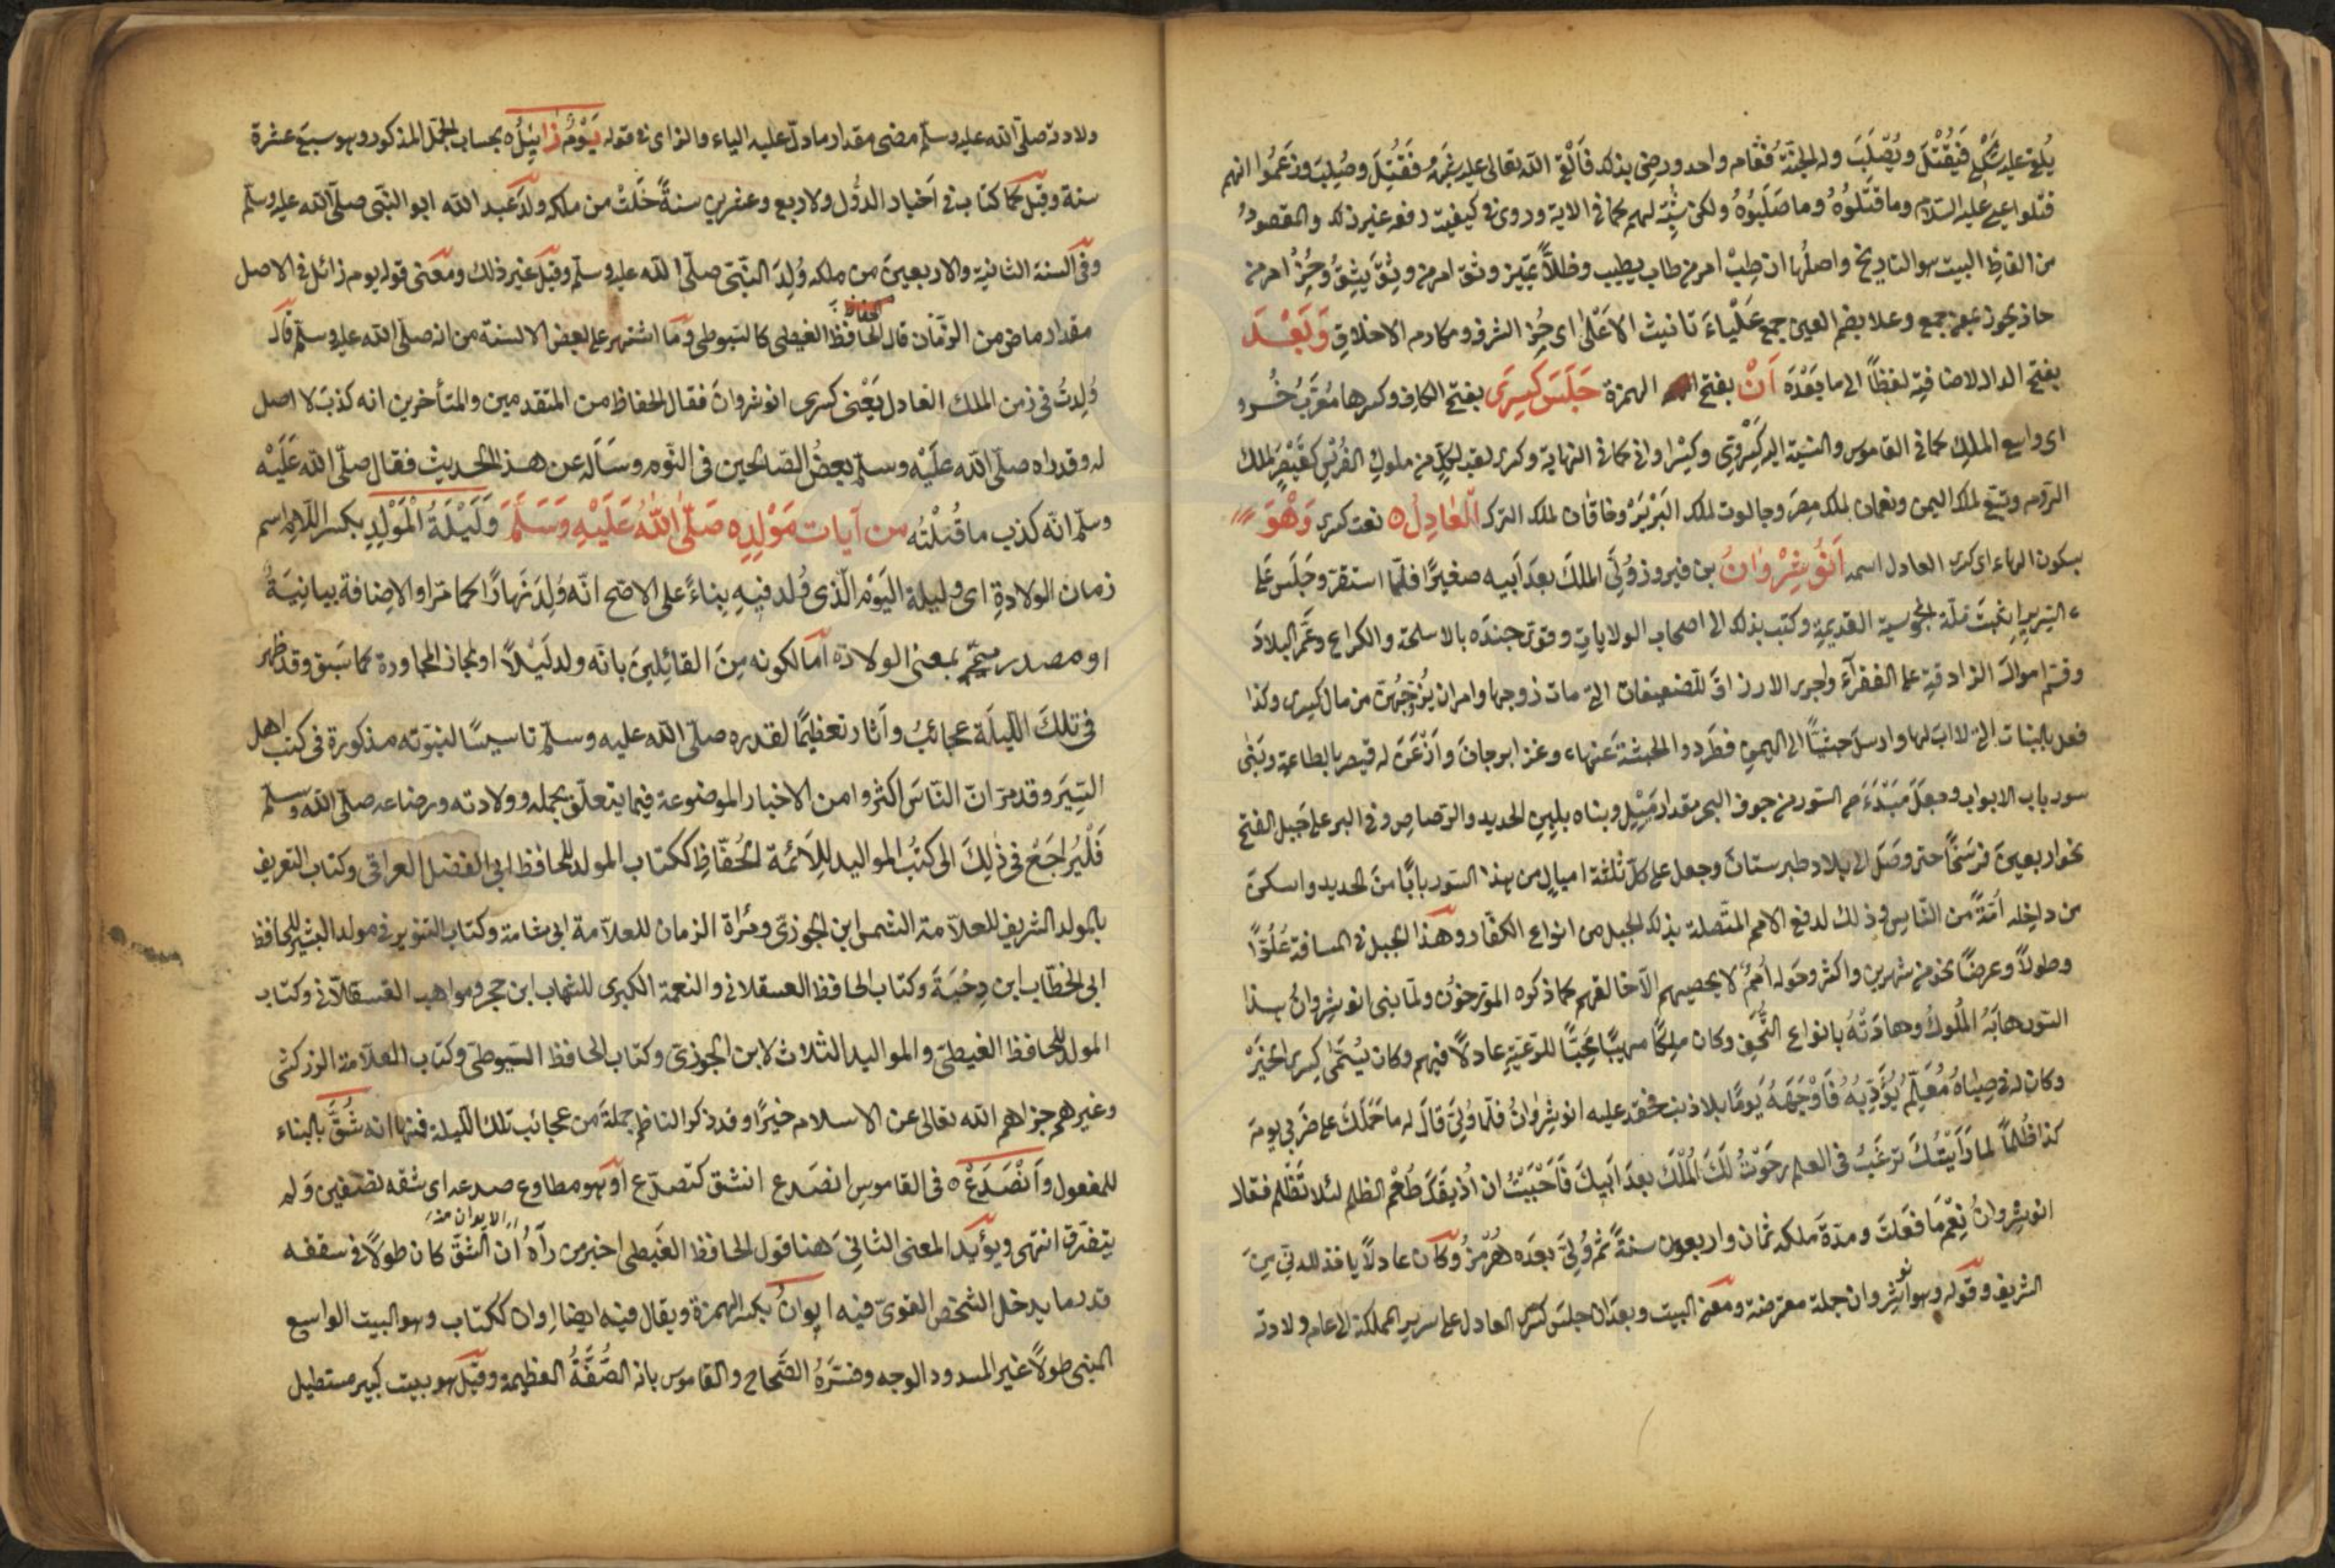 يُلقى عليه شَبَهي فَيُقْتَلَ ويُصْلَبَ وله الجنّةُ فقام واحد ورضى بذلك فَاَلْقى الله تعالى عليه شَبَهَهُ فَقُتِلَ وصُلِبَ وزعَمُوا انهم
قتلوا عيسى عليه السّلام وما قتَلُوهُ وما صَلَبُوهُ ولكن شُبّه لهم كما فى الاية وروى فى كيفيّت رفعه غير ذلك والمقصودُ
من الفاظِ البيت هو التاريخ واصلُها ان طِبْ امر من طاب يطيب وظلاًّ تمييز وثق امر من وثِقَ يَثِقُ وحُزْ امر من
حاز يحوز بمعنى جمع وعلا بضم العين جمع عَلْياءَ تانيث الاَعْلى اى حُزِ الشرف ومكارم الاخلاق وَبَعْدَ
بفتح الدال لاضافته لفظاً الى ما بَعْدَه اَنْ بفتح الهمزة جَلَسَ كِسرَى بفتح الكاف وكسرها مُعَرَّبُ خُسرو
اى واسع الملكِ كما فى القاموس والنسبة اليه كِسْرَوِىّ وكِسْراوانى كما فى النهاية وكسرى لقب لكلِّ من ملوك الفُرْسِ كقَيْصَرَ لملك
الروم وتبّع لملك اليمن ونعمان لملك مِصرَ وجالوت لملك البَرْبَرْ وخاقان لملك الترك اَلْعَادِلُ ٥ نعت كسرى وَهْوَ
بسكون الهاء اى كسرى العادل اسمه اَنُوشِرْوَانُ بن فيروز وُلِّىَ الملكَ بعدَ اَبيه صغيرًا فلمّا استقرّ وجَلَسَ عَلى
السّرير اِنتخَبَ مِلّة المجوسية القديمةِ وكتب بذلك الى اصحاب الولاياتِ وقوّى جندَه بالاسلحة والكراع وعَمَّر البلادَ
وقسّم اموالَ الزنادقةِ على الفقرآءَ واجرى الارزاق للضعيفات التى مات زوجها وامر ان يُزَوّجْهُنّ من مال كسرى وكذا
فعل بالبنات التى لا ابَ لها وارسلَ جَيْشًا الى اليمن فطَرَدوا الحبشةَ عَنها وغزا برجانَ واَذْعَنَ له قيصر بالطاعة وبَنى
سور باب الابواب وجعلَ مَبْدَءَ السّور من جوف البحر مقدار مِيْلٍ وبناه بلبِنِ الحديد والرّصاصِ وفى البر على جَبل الفتح
نحو اربعينَ فرسَخًا حتى وصَلَ الى بلاد طبرستانَ وجعل على كلّ ثلثة اميالٍ من هذا السّور بابًا من الحديد واسكن
من داخِله اُمّةً من الناس وذلك لدفع الامم المتّصلة بذلك الجبل من انواع الكفّار وهذا الجبل فى المسافة عُلُوًّا
وطولاً وعرضًا نحو من شهرين واكثر وحَوله اُممٌ لا يحصيهم الاّ خالقهم كما ذكره المؤرخوُن ولمّا بنى انوشِروانُ هذا
السّور هابَهُ المُلُوكُ وهادَتْهُ بانواع التُّحَفِ وكان ملِكًا مهيبًا مُحِبًّا للرّعيّةِ عادلاً فيهم وكان يُسَمّٰى كِسرى الخَيْرْ
وكان له فى صِبَاهُ مُعَلِّم يُؤَدِّبهُ فَاَوْجَعَهُ يَومًا بلا ذنب فحقد عليه انوشِروانُ فلمّا وُلّىَ قالَ له ما حَملَكَ على ضَرْبى يومَ
كذا ظُلماً لما رَاَيْتُكَ ترغبُ فى العلم رجَوْتُ لكَ المُلْكَ بعدَ اَبيكَ فَاَحْبَبْتُ ان اُذيقَكَ طُعْمَ الظلم لئلا تَظْلِم فقال
انوشِروانُ نِعْمَ ما فعَلتَ ومدّة مَلكه ثمان واربعون سنةً ثم وُلِىَ بعدَه هُرْمُزُ وكان عادلاً ياخذ للدنى من
الشريف وقوله وهو انوشِروان جملة معترضة ومعنى البيت وبعدَ ان جلسَ كسرى العادل على سرير المملكة الى عام ولادته
ولادته صلّى الله عليه وسلّم مضى مقدار ما دلّ عليه الياء والزاى فى قوله يَوْمٌ زَايِلُ ٥ بحساب الجمَّل المذكور وهو سبعَ عشرة
سنة وقيل كما كتاب فى اَخبار الدُّول ولاربع وعشرين سنةً خَلَتْ من ملكه ولدَ عَبد الله ابو النّبى صلّى الله عليه وسلّم
وفى السنة الثانية والاربعينَ من ملكه وُلِدَ النّبىّ صلّى الله عليه وسلّم وقيلَ غير ذلك ومعنى قوله يوم زائل فى الاصل
مقدار ماض من الزّمان قال الحافظُ الغيطى كالسّيوطى وما اشتهر على بعض الالسنة من انه صلّى الله عليه وسلّم قال
وُلِدتُ فى زمن الملك العادل يَعْنى كسرى انوشروانَ فقال الحفاظ من المتقدمين والمتأخرين انه كذبٌ لا اصل
له وقد راٰه صلّى الله عَلَيْه وسلّم بعضُ الصّالحين فى النّوم وسَاَله عن هذا الحديث فقال صلّى الله عَلَيْه
وسلّم انّه كذب ما قُلْتُه من آيات مَوْلِدِه صَلّى اللهُ عَلَيْهِ وَسَلَّمَ وَلَيْلَةُ الْمَوْلِدِ بكسر اللّام اسم
زمان الولادةِ اى وليلة اليَوْم الّذى وُلد فيهِ بِناءً على الاصَح انّه وُلِدَ نَهارًا كما مَرّ او الاِضافة بيانِيَةُ
او مصدر ميمىّ بمعنى الولادة امّا لكونه مِنَ القائِلينَ بانّه ولد لَيْلاً او لمجاز المجاورة كما سَبق وقد ظهر
فى تِلكَ اللّيلَة عَجائبُ واَثار تعظيمًا لقدره صلّى الله عليه وسلّم تاسيسًا لنبوّته مذكورة فى كتب اهل
السِّيَر وقد مرّ انّ النّاسَ اكثروا من الاخبار الموضوعة فيما يتعلّق بحمله وولادته ورضاعه صلّى الله وسلّم
فَلْيُراجَعُ فى ذٰلِكَ الى كتبُ المواليد للِاَئمّة الحُفّاظِ ككتاب المولد للحافظ ابى الفضل العراقى وكتاب التعريف
بالمولد الشريف للعلاّمة الشمس ابن الجوزىّ ومرْاٰة الزمان للعلاّمة ابى شامة وكتاب التنوير فى مولد البشير للحافظ
ابى الخطّاب ابن دِحْيَةَ وكتاب الحافظ العسقلانى والنعمة الكبرى للشهاب ابن حجر ومواهب القسطلاّنى وكتاب
المولد للحافظ الغيطىّ والمواليد الثلاث لابن الجوزىّ وكتاب الحافظ السّيوطى وكتاب العلاّمة الزركشى
وغيرهم جزاهم الله تعالى عن الاسلام خيرًا وقد ذكر الناظم جملةً من عجائب تلك اللّيلة فمنها انه شُقَّ بالبناء
للمفعول وَاَنْصَدَعْ ٥ فى القاموس انصَدع انشق كتصدّع اَوْ هو مطاوع صدعه اى شقه نصفين وَلم
يتفرّق انتهى ويؤيد المعنى الثانىَ هنا قول الحافظ الغَيطى اخبر من رآهُ ان الشقّ كان طولاً فى سقفه
الايوان منه
قدر ما يدخل الشخص القوىّ فيه ايوانُ بكسر الهمزة ويقال فيه ايضا اِوان ككتاب وهو البيت الواسع
المبنى طولاً غير المسدود الوجه وفسّرَهُ الصَّحاح والقاموس بانه الصُّفَّةُ العظيمة وقيل هو بيت كبير مستطيل